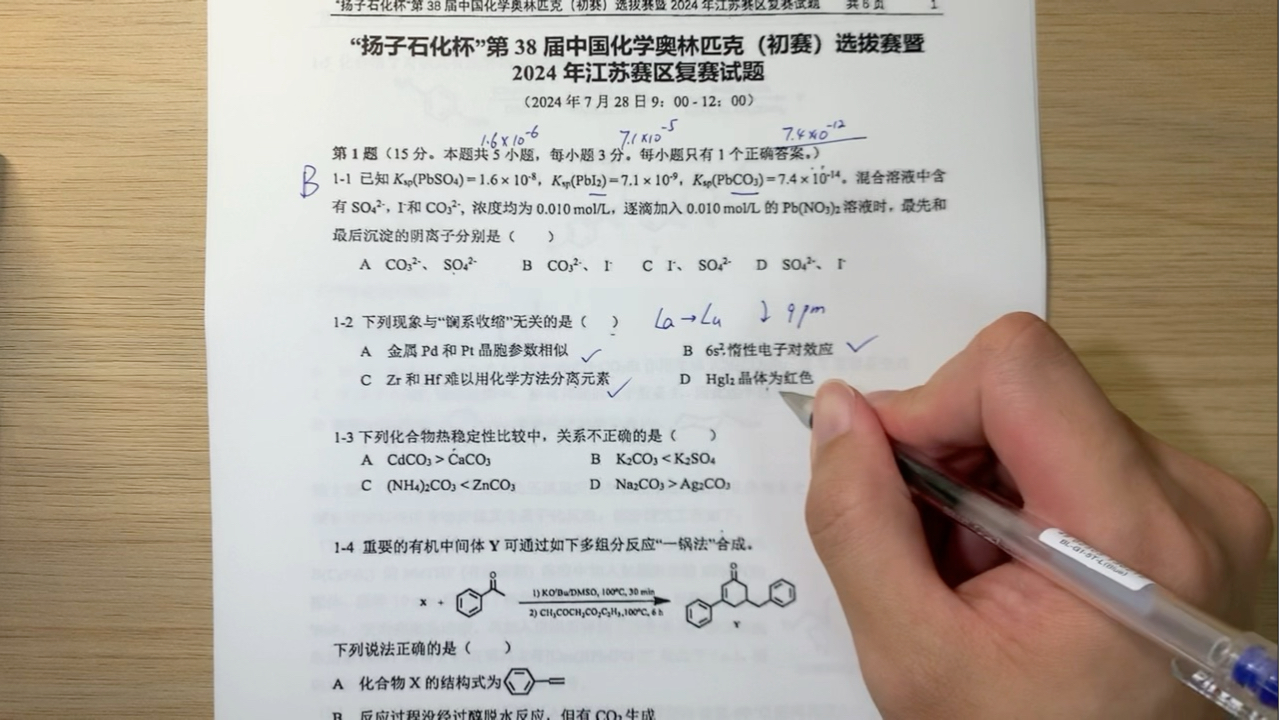 "扬子石化杯"第 38 届中国化学奥林匹克（初赛）选拔赛暨 2024 年江苏赛区复赛试题 共 6 页 1
“扬子石化杯”第 38 届中国化学奥林匹克（初赛）选拔赛暨
2024 年江苏赛区复赛试题
（2024 年 7 月 28 日 9：00 - 12：00）
1.6×10⁻⁶ 7.1×10⁻⁵ 7.4×10⁻¹²
第 1 题（15 分。本题共 5 小题，每小题 3 分。每小题只有 1 个正确答案。）
B 1-1 已知 Kₛₚ(PbSO₄) = 1.6 × 10⁻⁸，Kₛₚ(PbI₂) = 7.1 × 10⁻⁹，Kₛₚ(PbCO₃) = 7.4 × 10⁻¹⁴。混合溶液中含
有 SO₄²⁻，I⁻和 CO₃²⁻, 浓度均为 0.010 mol/L，逐滴加入 0.010 mol/L 的 Pb(NO₃)₂ 溶液时，最先和
最后沉淀的阴离子分别是（ ）
A CO₃²⁻、 SO₄²⁻ B CO₃²⁻、 I⁻ C I⁻、 SO₄²⁻ D SO₄²⁻、 I⁻
1-2 下列现象与“镧系收缩”无关的是（ ） La → Lu ↓ 9 pm
A 金属 Pd 和 Pt 晶胞参数相似 ✓ B 6s² 惰性电子对效应 ✓
C Zr 和 Hf 难以用化学方法分离元素 ✓ D HgI₂ 晶体为红色
1-3 下列化合物热稳定性比较中，关系不正确的是（ ）
A CdCO₃ > CaCO₃ B K₂CO₃ < K₂SO₄
C (NH₄)₂CO₃ < ZnCO₃ D Na₂CO₃ > Ag₂CO₃
1-4 重要的有机中间体 Y 可通过如下多组分反应“一锅法”合成。
O O
X + 1) KOᵗBu/DMSO, 100°C, 30 min
2) CH₃COCH₂CO₂C₂H₅, 100°C, 6 h
Y
下列说法正确的是（ ）
A 化合物 X 的结构式为
B 反应过程没经过醇脱水反应，但有 CO₂ 生成